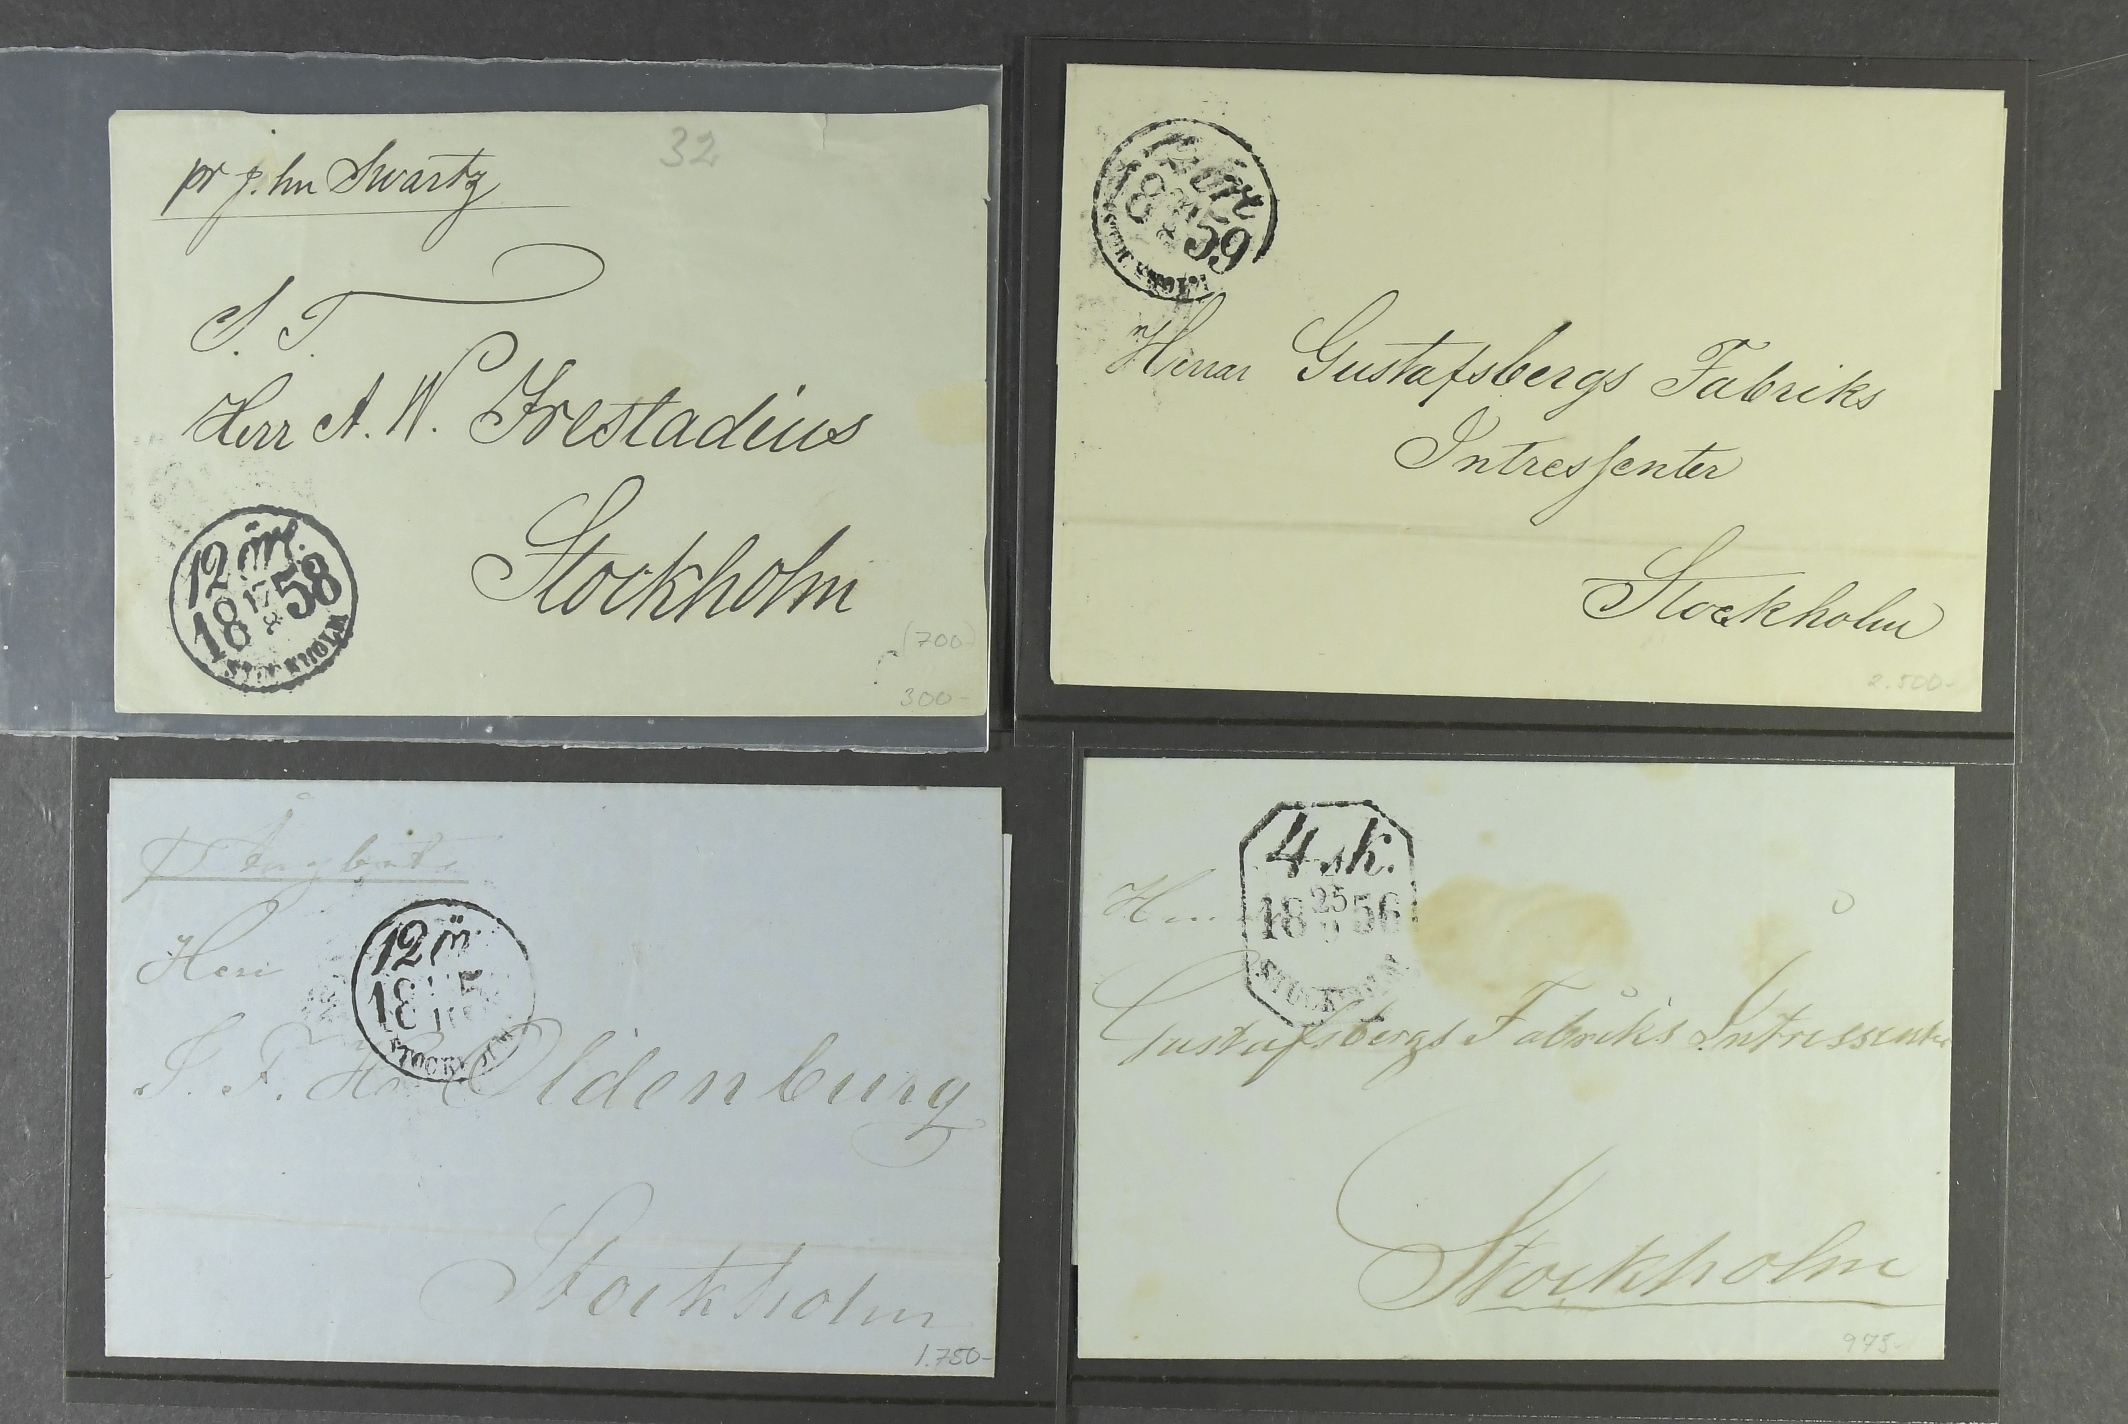 pr J. hn Swartz
32
S. T.
Herr A. W. Frestadius
Stockholm
12 öre.
18 17 58
8
STOCKHOLM
(700-)
300-
12 ör
18 59
Herrar Gustafsbergs Fabriks
Intressenter
Stockholm
2.500-
pr Ångbåts
Herr
12 ö
18
STOCKHOLM
J. F. Oldenburg
Stockholm
1.750-
4 sk.
18 25 56
9
STOCKHOLM
Gustafsbergs Fabriks Intressenter
Stockholm
975-